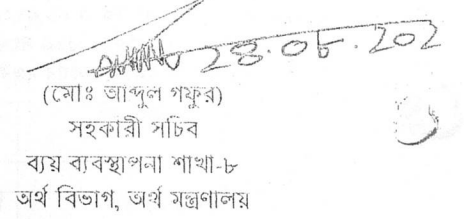 28.08.202
(মোঃ আব্দুল গফুর)
সহকারী সচিব
ব্যয় ব্যবস্থাপনা শাখা-৮
অর্থ বিভাগ, অর্থ মন্ত্রণালয়